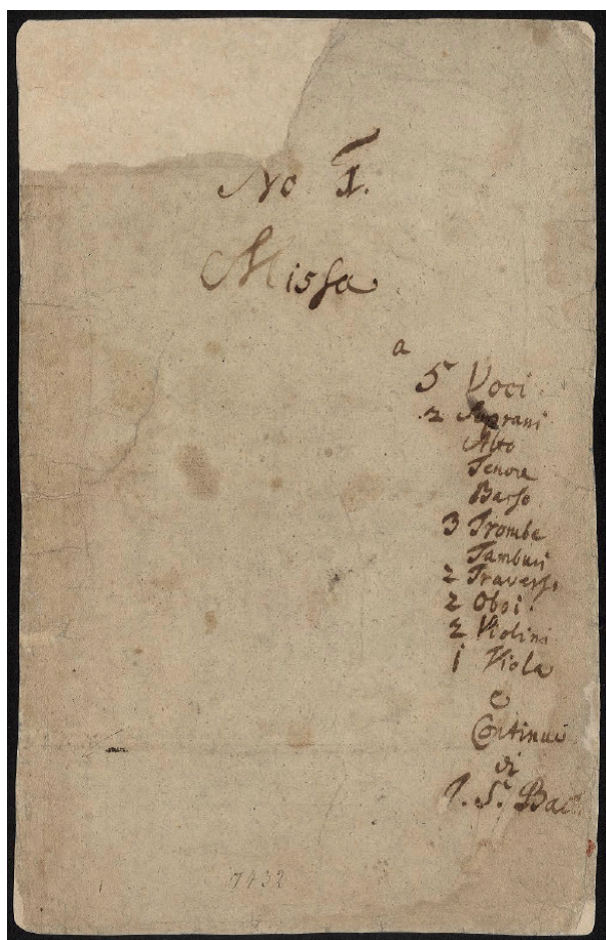 No I.
Missa
a
5 Voci
2 Soprani
Alto
Tenore
Basso
3 Trombe
Tamburi
2 Travers.
2 Oboi.
2 Violini
1 Viola
e
Continui
di
J. S. Bach
7432